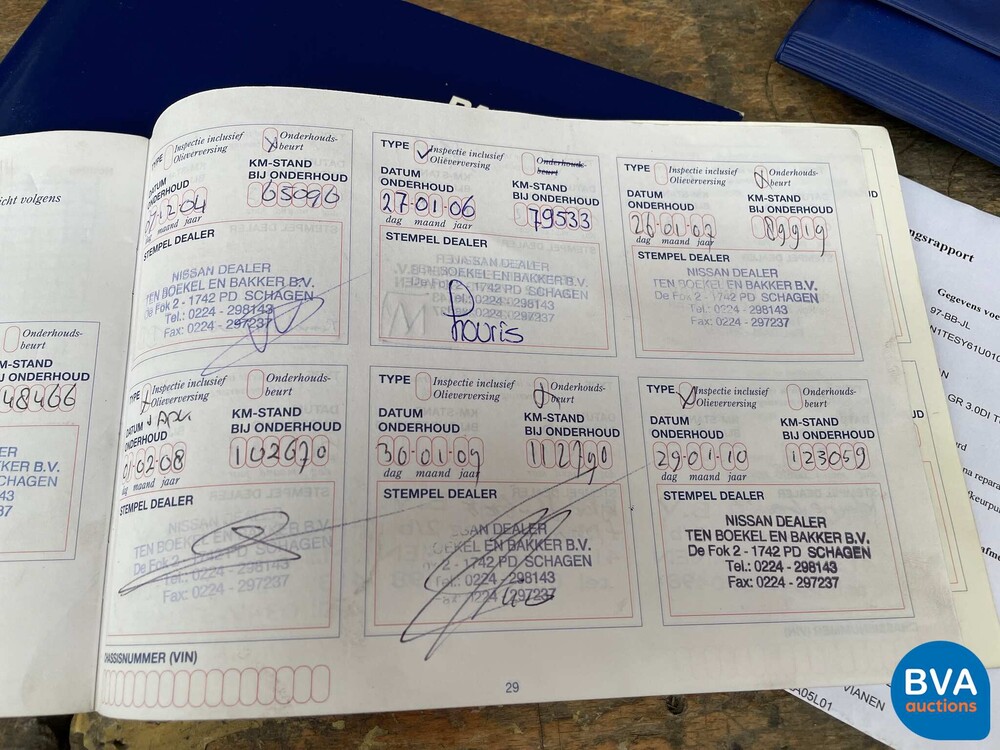 icht volgens
Onderhouds-
beurt
KM-STAND
BIJ ONDERHOUD
48466
TYPE Inspectie inclusief Olieverversing
Onderhouds-
beurt
DATUM
ONDERHOUD
KM-STAND
BIJ ONDERHOUD
65096
12-04
dag maand jaar
STEMPEL DEALER
NISSAN DEALER
TEN BOEKEL EN BAKKER B.V.
De Fok 2 - 1742 PD SCHAGEN
Tel.: 0224 - 298143
Fax: 0224 - 297237
TYPE Inspectie inclusief Olieverversing
Onderhouds-
beurt
DATUM
ONDERHOUD
KM-STAND
BIJ ONDERHOUD
27-01-06
79533
dag maand jaar
STEMPEL DEALER
NISSAN DEALER
TEN BOEKEL EN BAKKER B.V.
De Fok 2 - 1742 PD SCHAGEN
Tel.: 0224 - 298143
Fax: 0224 - 297237
TYPE Inspectie inclusief Olieverversing
Onderhouds-
beurt
DATUM
ONDERHOUD
KM-STAND
BIJ ONDERHOUD
26-01-07
89919
dag maand jaar
STEMPEL DEALER
NISSAN DEALER
TEN BOEKEL EN BAKKER B.V.
De Fok 2 - 1742 PD SCHAGEN
Tel.: 0224 - 298143
Fax: 0224 - 297237
TYPE Inspectie inclusief Olieverversing
Onderhouds-
beurt
DATUM
ONDERHOUD
KM-STAND
BIJ ONDERHOUD
01-02-08
102670
dag maand jaar
STEMPEL DEALER
NISSAN DEALER
TEN BOEKEL EN BAKKER B.V.
De Fok 2 - 1742 PD SCHAGEN
Tel.: 0224 - 298143
Fax: 0224 - 297237
TYPE Inspectie inclusief Olieverversing
Onderhouds-
beurt
DATUM
ONDERHOUD
KM-STAND
BIJ ONDERHOUD
30-01-09
112790
dag maand jaar
STEMPEL DEALER
NISSAN DEALER
TEN BOEKEL EN BAKKER B.V.
De Fok 2 - 1742 PD SCHAGEN
Tel.: 0224 - 298143
TYPE Inspectie inclusief Olieverversing
Onderhouds-
beurt
DATUM
ONDERHOUD
KM-STAND
BIJ ONDERHOUD
29-01-10
123059
dag maand jaar
STEMPEL DEALER
NISSAN DEALER
TEN BOEKEL EN BAKKER B.V.
De Fok 2 - 1742 PD SCHAGEN
Tel.: 0224 - 298143
Fax: 0224 - 297237
CHASSISNUMMER (VIN)
29
ngsrapport
Gegevens voe
97-BB-JL
N1TESY61U010
GR 3.0DI T
na repara
VIANEN
A05L01
BVA
auctions